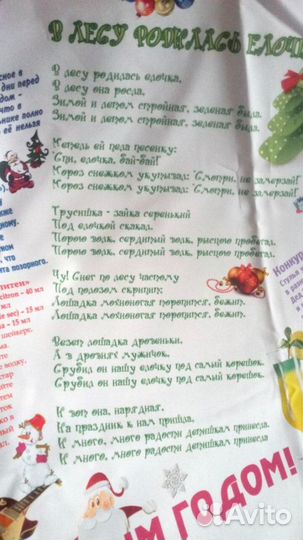 В ЛЕСУ РОДИЛАСЬ ЕЛОЧК
В лесу родилась елочка,
В лесу она росла,
Зимой и летом стройная, зеленая была.
Зимой и летом стройная, зеленая была.
Метель ей пела песенку:
"Спи, елочка, бай-бай!"
Мороз снежком укутывал: "Смотри, не замерзай!"
Мороз снежком укутывал: "Смотри, не замерзай!"
Трусишка - зайка серенький
Под елочкой скакал.
Порою волк, сердитый волк, рысцою пробегал.
Порою волк, сердитый волк, рысцою пробегал.
Чу! Снег по лесу частому
Под полозом скрипит;
Лошадка мохноногая торопится, бежит.
Лошадка мохноногая торопится, бежит.
Везет лошадка дровеньки,
А в дровнях мужичок,
Срубил он нашу елочку под самый корешок.
Срубил он нашу елочку под самый корешок.
И вот она, нарядная,
На праздник к нам пришла,
И много, много радости детишкам принесла.
И много, много радости детишкам принесла
ЫМ ГОДОМ!
сное в
дни перед
дом -
что в
нике полно
её нельзя
та позорного.
- 40 мл
- 15 мл
- 15 мл
Конкур
Avito